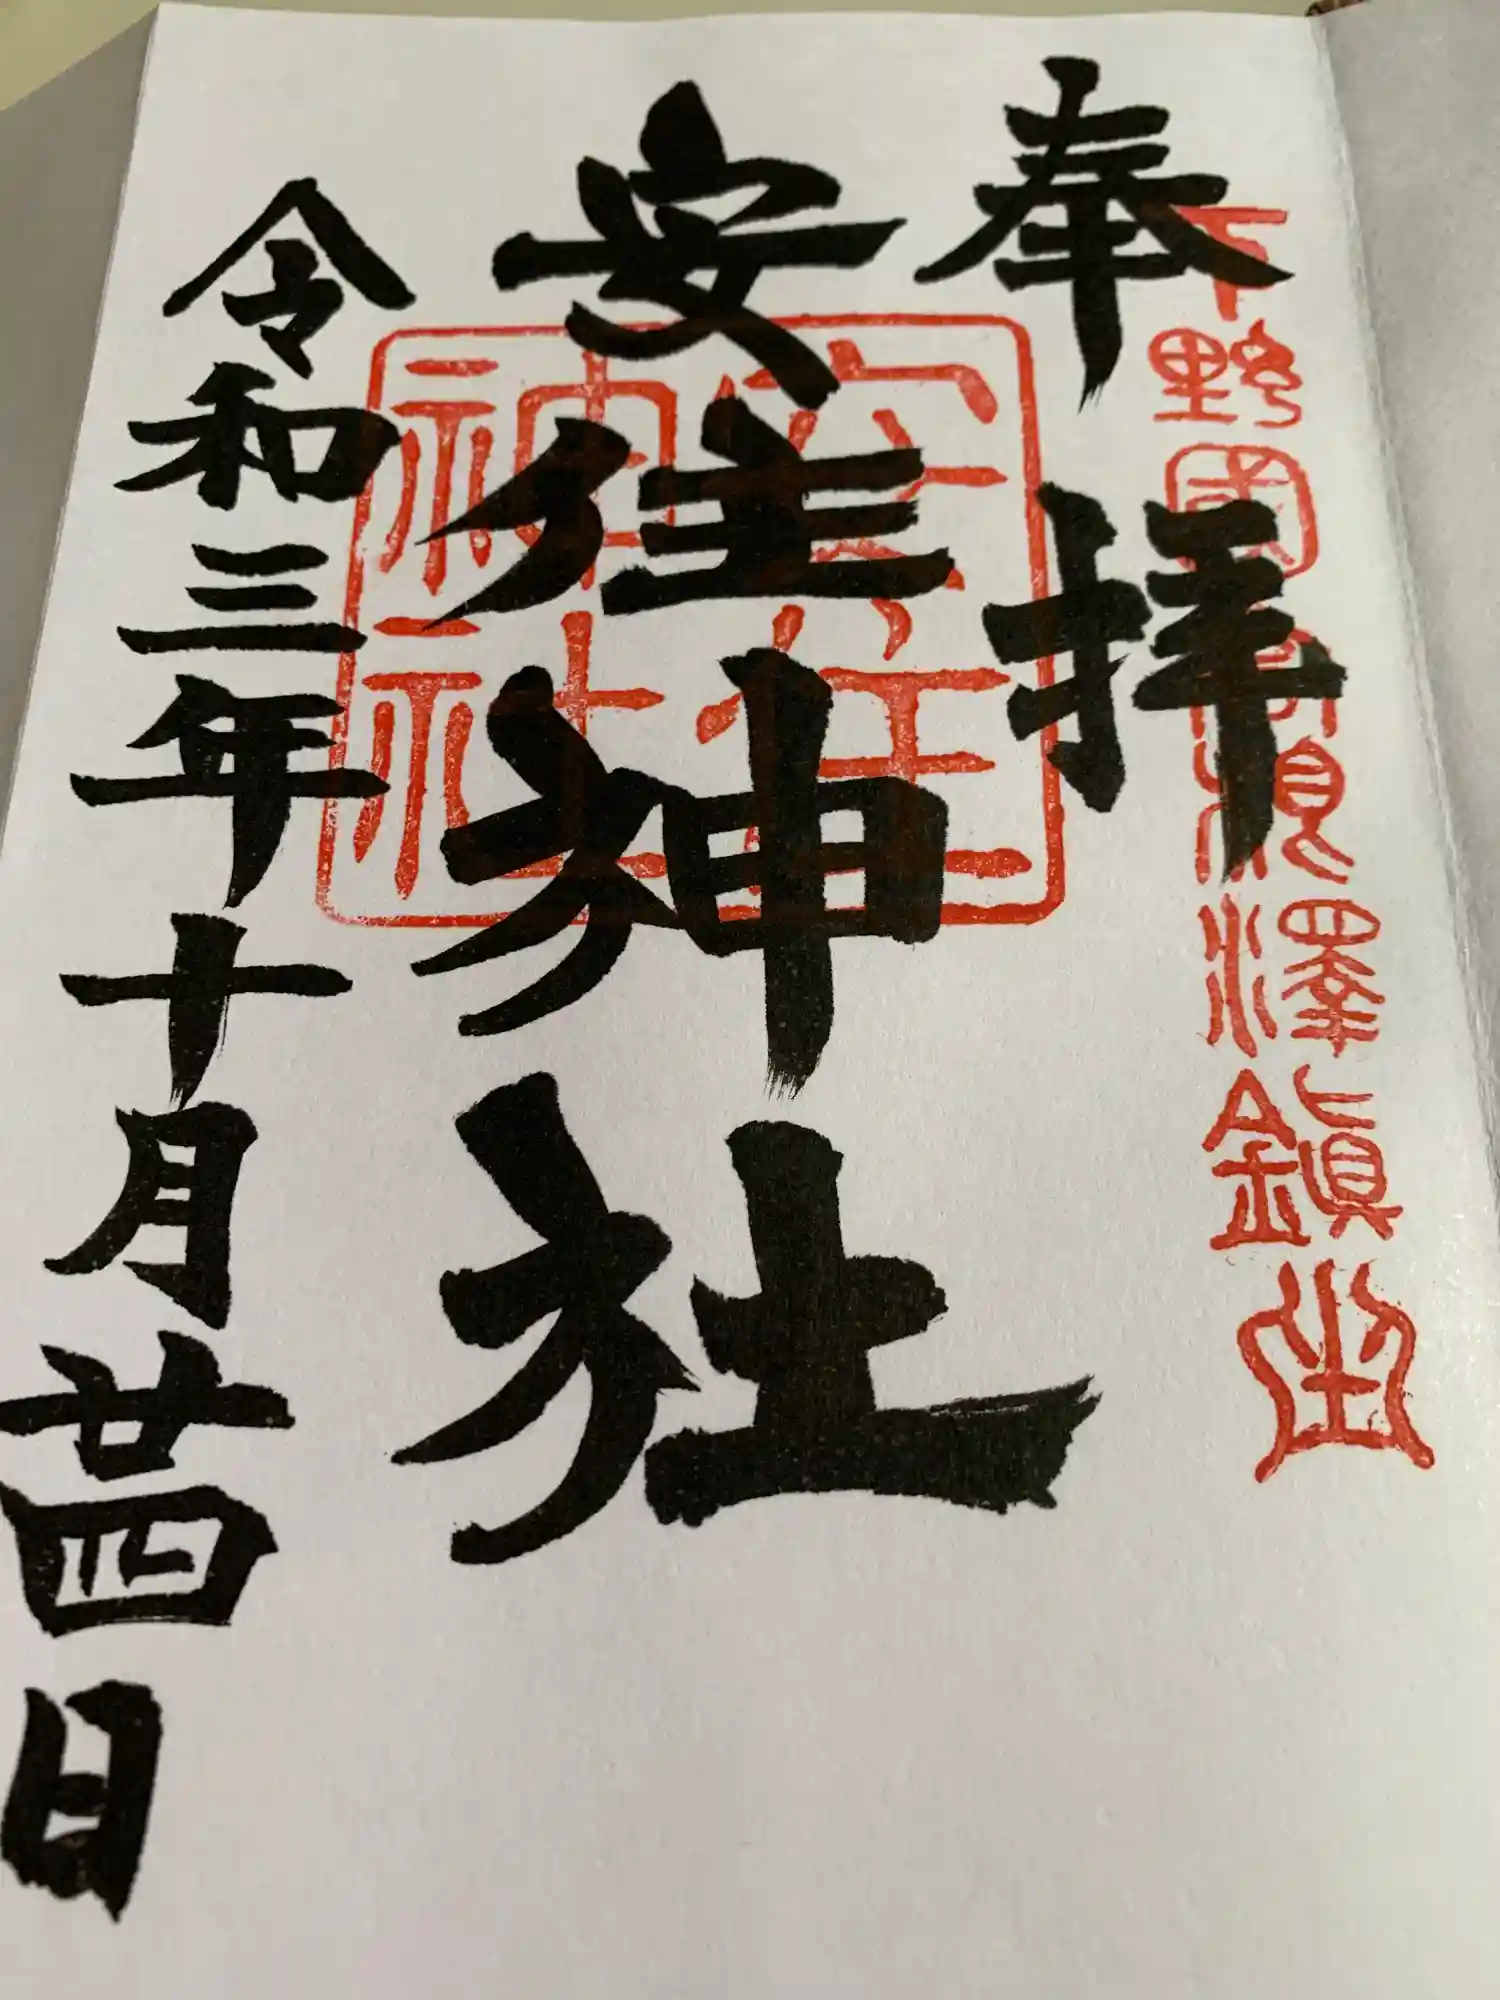 奉拝
下野國高根澤鎮坐
安住神社
安住神社
令和三年十月廿四日